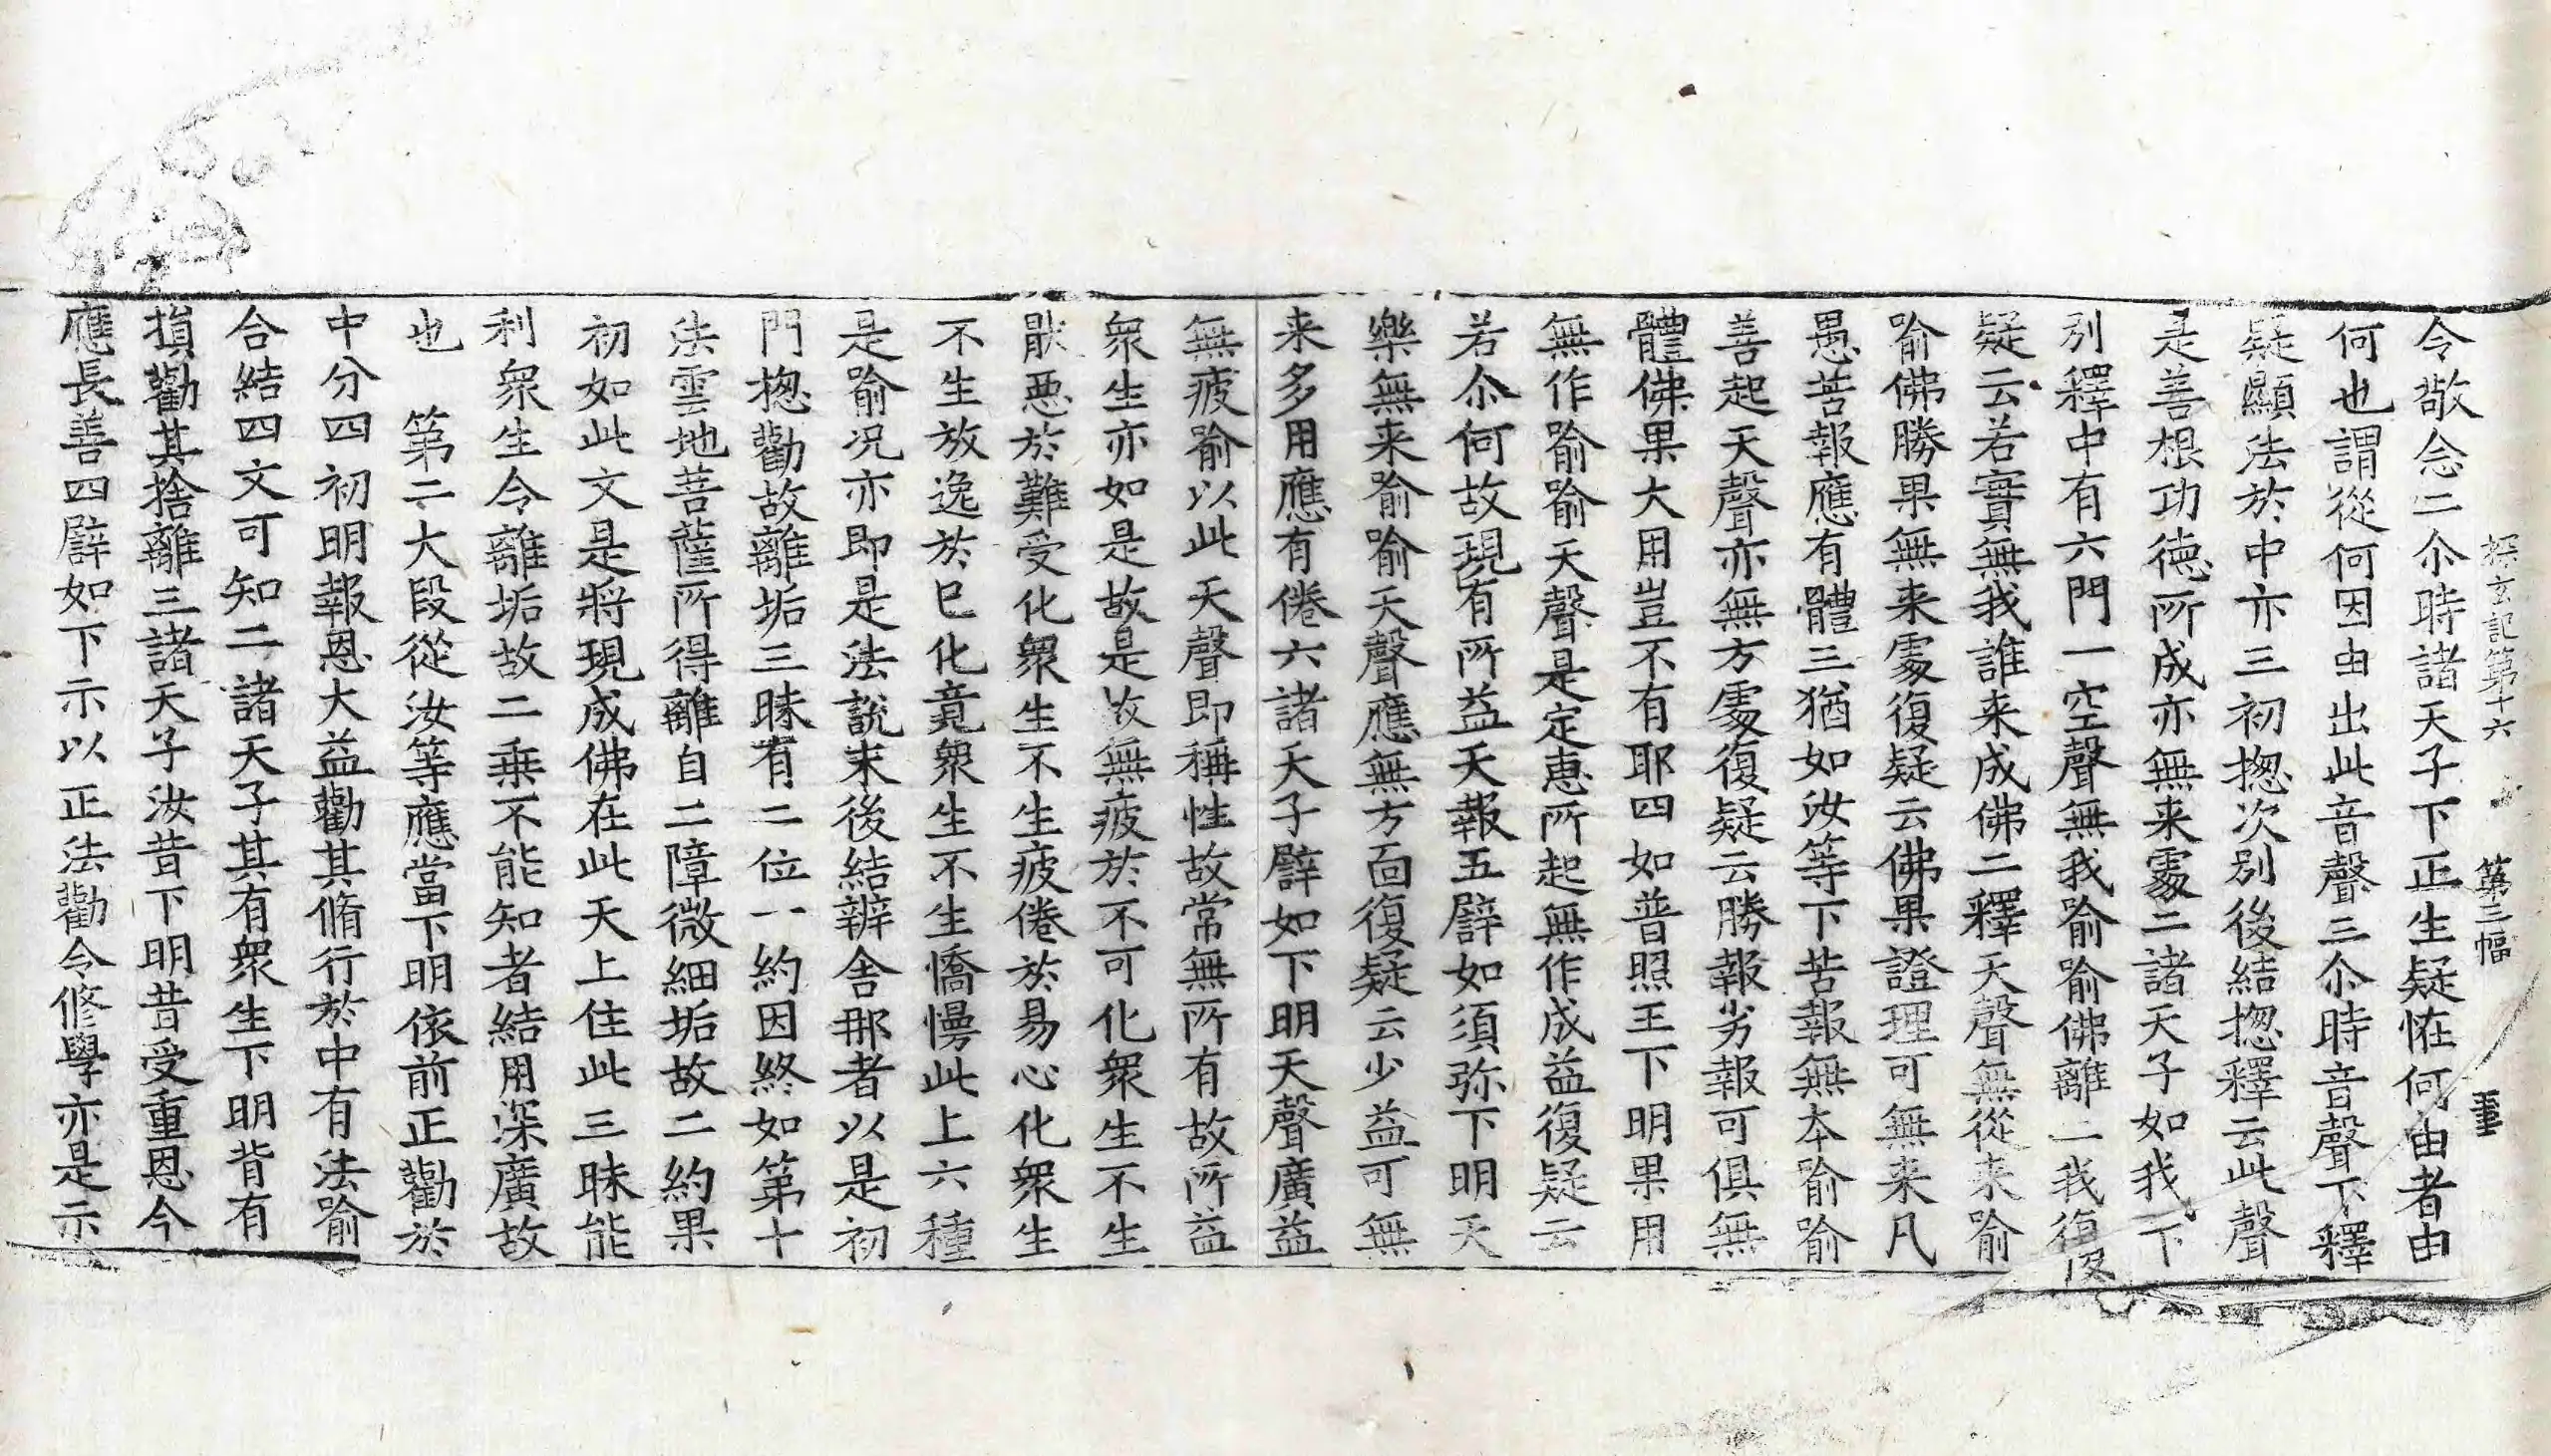 探玄記第十六 第三幅 重
令敬念二尒時諸天子下正生疑恠何由者由
何也謂從何因由出此音聲三尒時音聲下釋
疑顯法於中亦三初揔次別後結揔釋云此聲
是善根功德所成亦無来處二諸天子如我下
別釋中有六門一空聲無我喻喻佛離二我復
疑云若實無我誰来成佛二釋天聲無從来喻
喻佛勝果無来處復疑云佛果證理可無来凡
愚苦報應有體三猶如汝等下苦報無本喻喻
善起天聲亦無方處復疑云勝報劣報可俱無
體佛果大用豈不有耶四如普照王下明果用
無作喻喻天聲是定恵所起無作成益復疑云
若尒何故現有所益天報五辟如須弥下明天
樂無来喻喻天聲應無方面復疑云少益可無
来多用應有倦六諸天子辟如下明天聲廣益
無疲喻以此天聲即稱性故常無所有故所益
衆生亦如是故是故無疲於不可化衆生不生
猒悪於難受化衆生不生疲倦於易心化衆生
不生放逸於巳化竟衆生不生憍慢此上六種
是喻况亦即是法說末後結辨舍那者以是初
門揔勸故離垢三昧有二位一約因終如第十
法雲地菩薩所得離自二障微細垢故二約果
初如此文是將現成佛在此天上住此三昧能
利衆生令離垢故二乗不能知者結用深廣故
也 第二大段從汝等應當下明依前正勸於
中分四初明報恩大益勸其脩行於中有法喻
合結四文可知二諸天子其有衆生下明背有
損勸其捨離三諸天子汝昔下明昔受重恩今
應長善四辟如下示以正法勸令修學亦是示